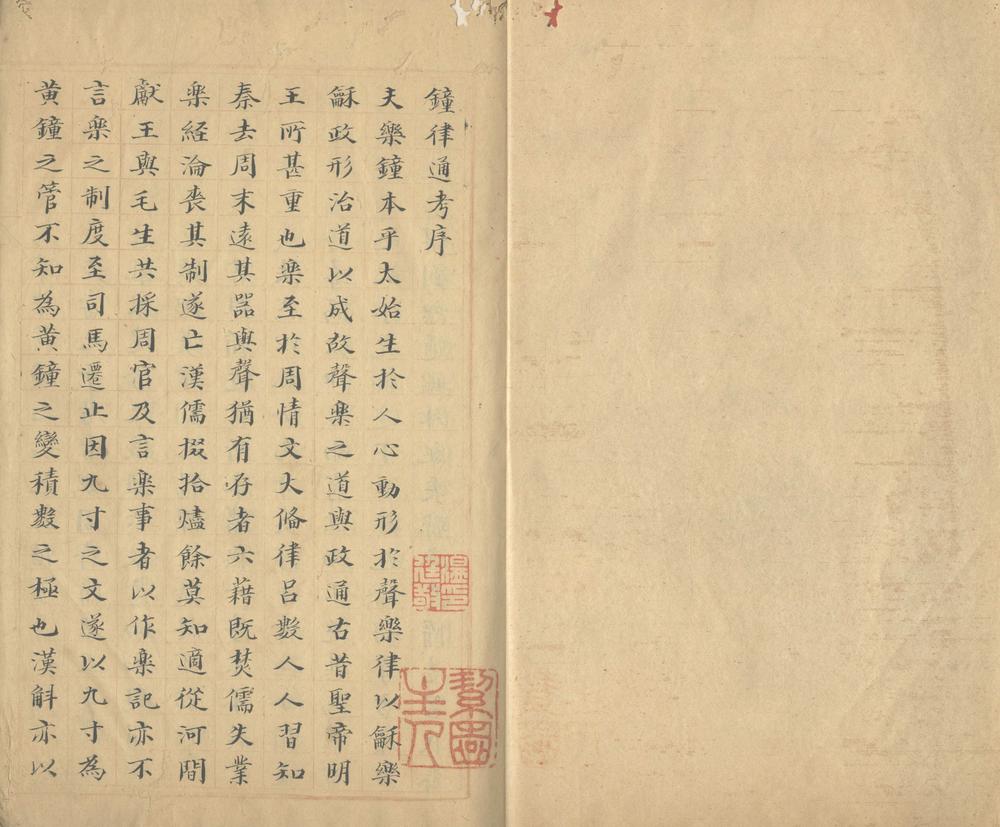 鐘律通考序
夫樂鐘本乎太始生於人心動形於聲樂律以龢樂
龢政形治道以成故聲楽之道與政通右昔聖帝明
王所甚重也楽至於周情文大俻律呂數人人習知
秦去周末遠其噐與聲猶有存者六藉既焚儒失業
楽経淪喪其制遂亡漢儒掇拾燼餘莫知適從河間
獻王與毛生共採周官及言楽事者以作楽記亦不
言楽之制度至司馬遷止因九寸之文遂以九寸為
黃鐘之管不知為黃鐘之變積數之極也漢斛亦以